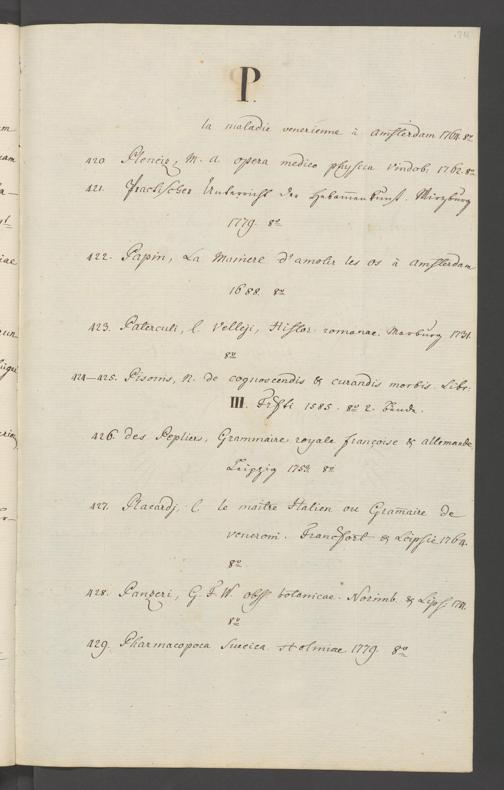 P.
la maladie venerienne à Amsterdam 1764. 8º
420. Plenciz, M. a opera medico physica Vindob. 1762. 8º
421. Practischer Unterricht der Hebamenkunst. Wirzburg
1779. 8º
422. Papin, La Maniere d'amolir les os à Amsterdam
1688. 8º
423. Paterculi, C. Velleji, Histor. romanae. Marburg 1731.
8º
424—425. Pisonis, N. de cognoscendis & curandis morbis. Libr:
III. 1585. 8º 2. Bände.
426. des Pepliers, Grammaire royale françoise & allemande
Leipzig 1753. 8º
427. Placardj, C. le maitre Italien ou Gramaire de
Veneroni. Francfort & Leipsic 1764.
8º
428. Panzeri, G. F. W. obss. botanicae. Norimb. & Lips:
8º
429. Pharmacopoea Suecica Holmiae 1779. 8º